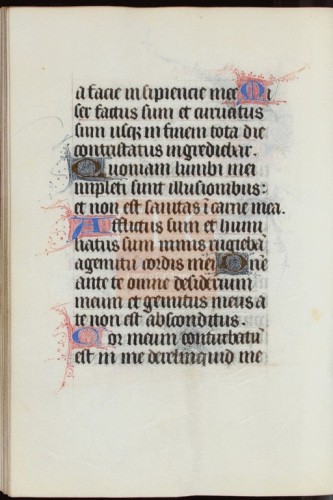 a facie insipiencie mee Mi
ser factus sum et curuatus
sum usq; in finem tota die
contristatus ingrediebar.
Quoniam lumbi mei
impleti sunt illusionibus:
et non est sanitas ī carne mea.
Afflictus sum et humi
liatus sum nimis rugiebā
a gemitu cordis mei Dn̄e
ante te omne desiderium
meum et gemitus meus a
te non est absconditus.
Cor meum conturbatū
est in me derelinquid me